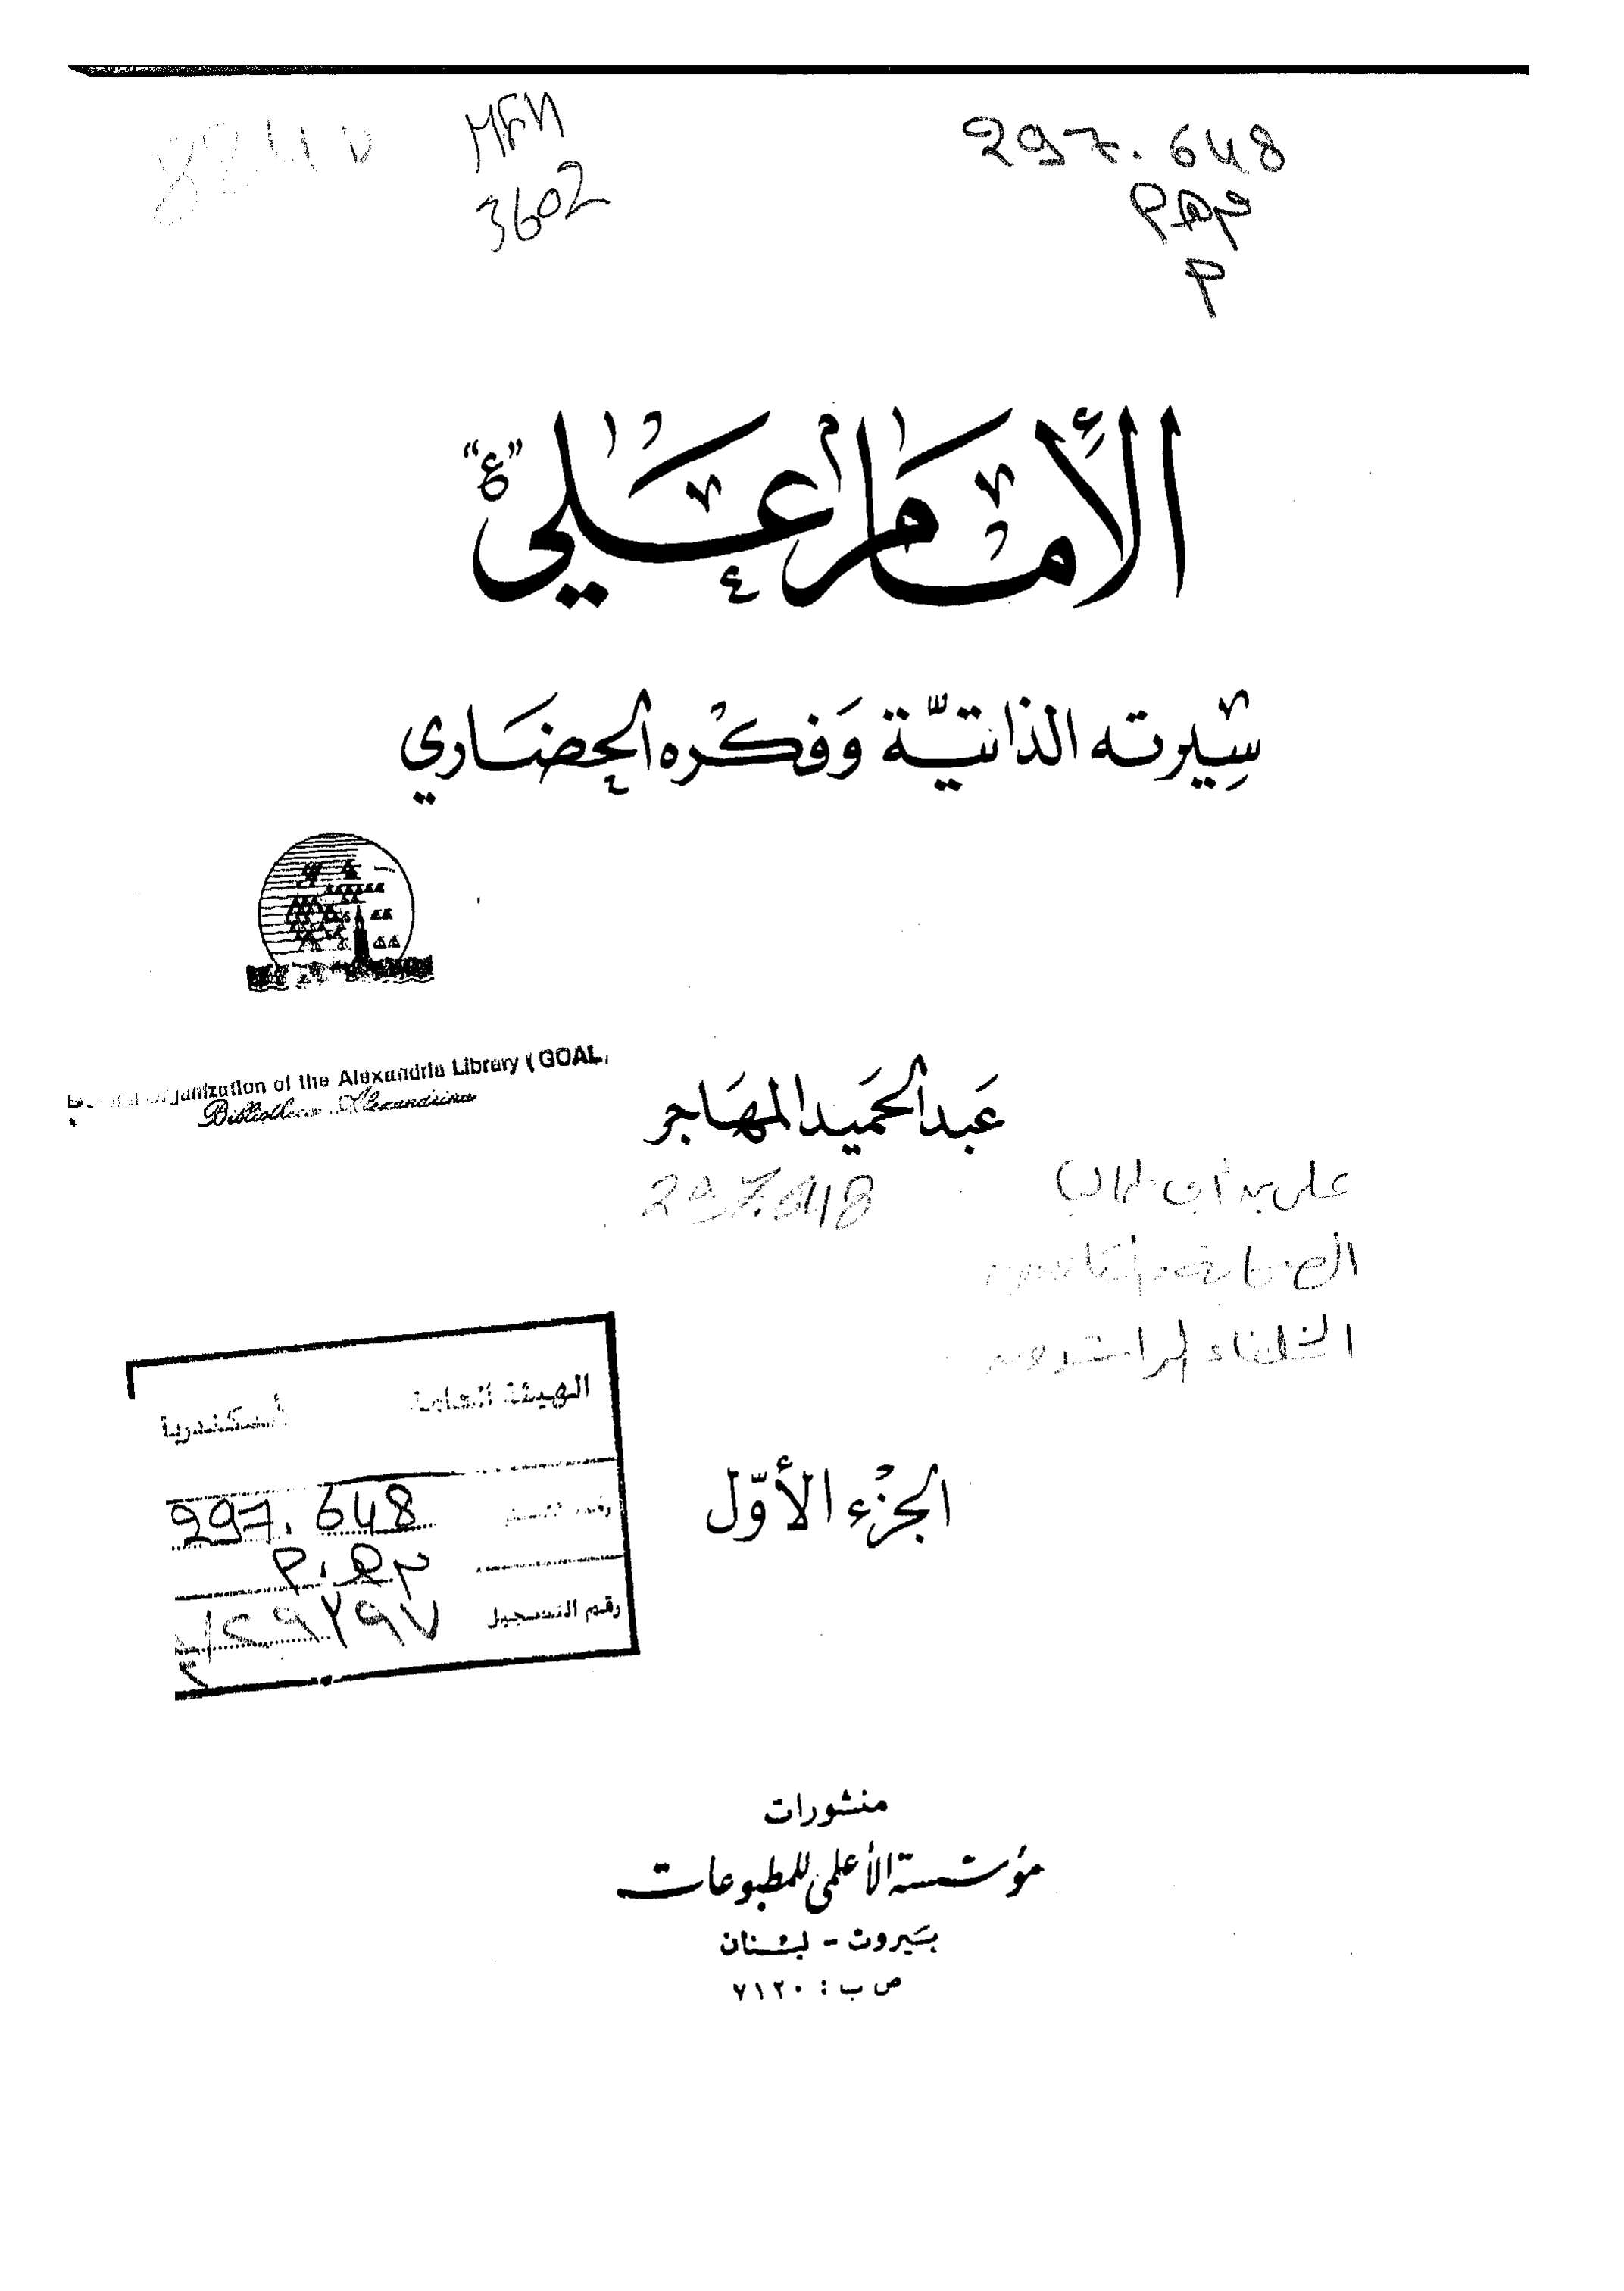 297.648
MFN
3602
الأمام علي "ع"
سيرته الذاتية وفكره الحضاري
Organization of the Alexandria Library (GOAL)
Bibliotheca Alexandrina
عبد الحميد المهاجر
297.648
علي بن أبي طالب
الخلفاء الراشدون
الهيئة العامة الأسكندرية
297.648
رقم التسجيل
الجزء الأول
منشورات
مؤسسة الأعلمي للمطبوعات
بيروت - لبنان
ص ب : ٧١٢٠